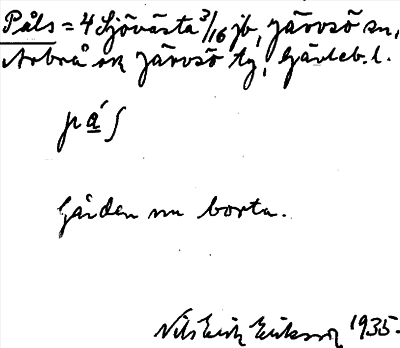 Påls = 4 Sjövästa 3/16 jb, Järvsö sn,
Arbrå ok Järvsö tg, Gävleb. l.
pá̱ʃ
Gården nu borta.
Nils Erik Eriksson 1935.